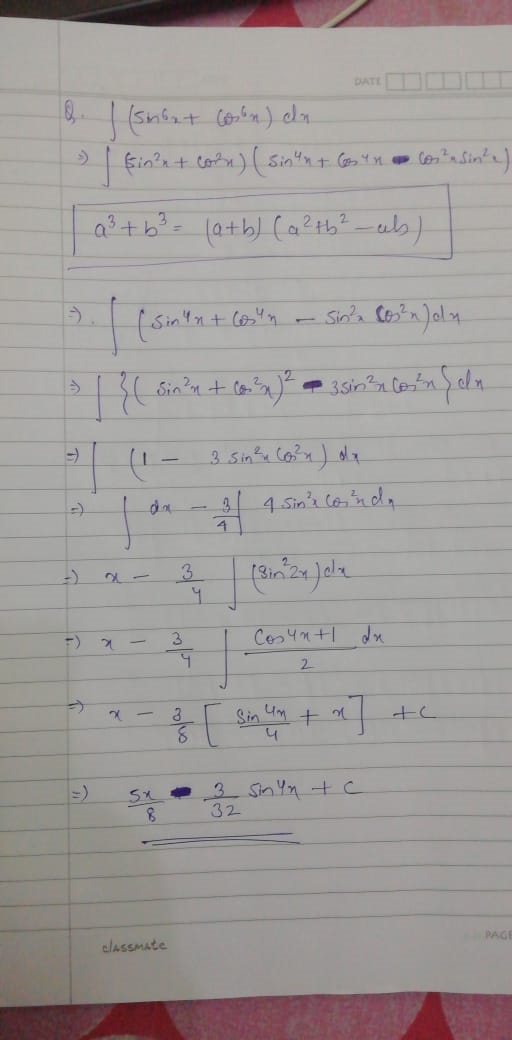 DATE
Q. ∫ (sin⁶x + cos⁶x) dx
⇒ ∫ (sin²x + cos²x) (sin⁴x + cos⁴x - cos²x sin²x)
a³ + b³ = (a+b) (a² + b² - ab)
⇒ ∫ (sin⁴x + cos⁴x - sin²x cos²x) dx
⇒ ∫ {(sin²x + cos²x)² - 3 sin²x cos²x} dx
⇒ ∫ (1 - 3 sin²x cos²x) dx
⇒ ∫ dx - 3/4 ∫ 4 sin²x cos²x dx
⇒ x - 3/4 ∫ (sin²2x) dx
⇒ x - 3/4 ∫ (cos4x+1)/2 dx
⇒ x - 3/8 [ sin4x/4 + x ] + c
⇒ 5x/8 - 3/32 sin4x + c
classmate
PAGE